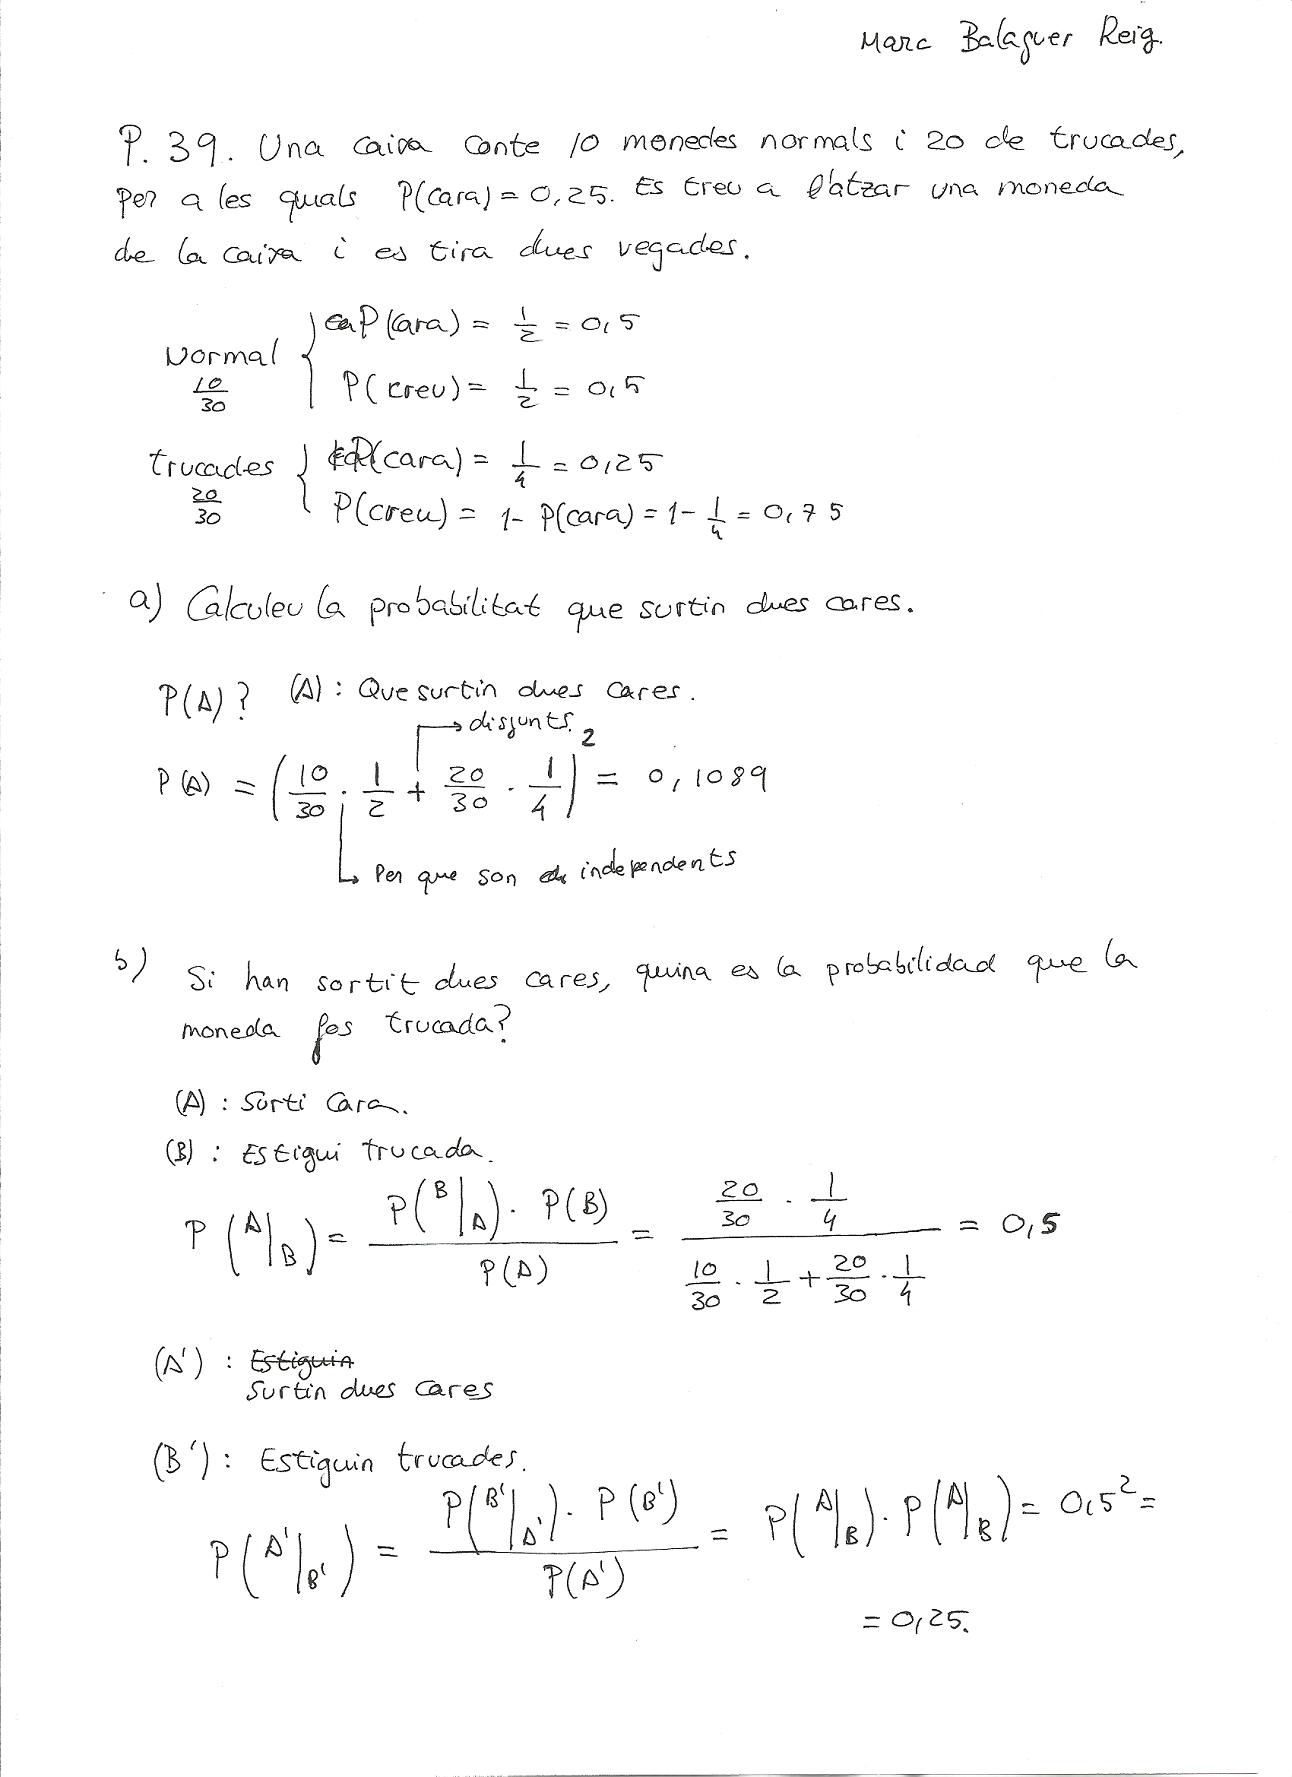 Marc Balaguer Reig.
P. 39. Una caixa conte 10 monedes normals i 20 de trucades,
per a les quals P(cara) = 0,25. Es treu a l'atzar una moneda
de la caixa i es tira dues vegades.
Normal 10/30 { P(Cara) = 1/2 = 0,5
P(creu) = 1/2 = 0,5
trucades 20/30 { P(cara) = 1/4 = 0,25
P(creu) = 1- P(cara) = 1- 1/4 = 0,75
a) Calculeu la probabilitat que surtin dues cares.
P(A)? (A) : Que surtin dues cares.
→ disjunts.
P(A) = (10/30 · 1/2 + 20/30 · 1/4)² = 0,1089
↳ Per que son independents
b) Si han sortit dues cares, quina es la probabilidad que la
moneda fos trucada?
(A) : Surti Cara.
(B) : Estigui trucada.
P(A|B) = P(B|A) · P(B) / P(A) = 20/30 · 1/4 / 10/30 · 1/2 + 20/30 · 1/4 = 0,5
(A') : Estiguin
Surtin dues cares
(B') : Estiguin trucades.
P(A'|B') = P(B'|A') · P(B') / P(A') = P(A|B) · P(A|B) = 0,5² =
= 0,25.